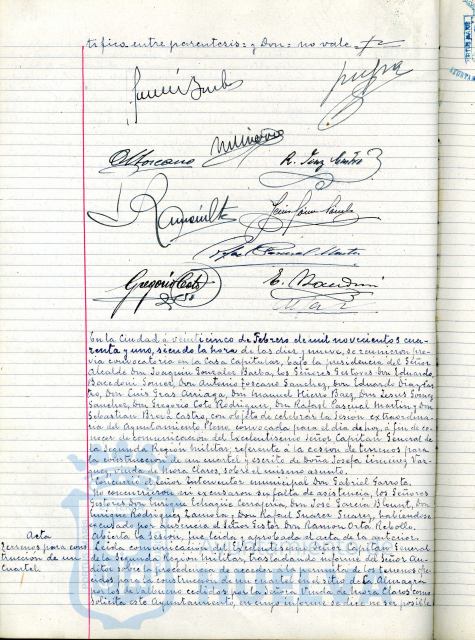 tifica entre parentesis = y Don = no vale
Gregorio Coto
En la Ciudad á veinticinco de Febrero de mil novecientos cua-
renta y uno, siendo la hora de las diez y nueve, se reunieron pre-
via convocatoria en la Casa Capitular, bajo la presidencia del Señor
Alcalde Don Joaquin Gonzalez Barba, los Señores Gestores Don Eduardo
Don Antonio Toscano Sanchez, Don Eduardo Diaz
Don Luis Gras Arriaga, Don Manuel Hierro Baez, Don Jesus Gomez
Sanchez, Don Gregorio Coto Rodriguez, Don Rafael Pascual Martin y Don
Sebastian Castro, con objeto de celebrar la sesion extraordina-
ria del Ayuntamiento Pleno, convocada para el dia de hoy, á fin de co-
nocer de comunicación del Excelentisimo Señor Capitán General de
la Segunda Región Militar, referente á la cesion de terrenos para
la construcción de un cuartel y escrito de Doña Josefa Jimenez Vaz-
quez, viuda de Mora Claros, sobre el mismo asunto.
Concurrió el Señor Interventor municipal Don Gabriel Garrota.
No concurrieron ni excusaron su falta de asistencia, los Señores
Gestores Don Enrique Don José Garcia Blount, Don
Enrique Rodriguez y Don Rafael Suarez Suarez, habiendose
excusado por ausencia el Señor Gestor Don Ramon Orta Rebollo.
Abierta la Sesion, fue leida y aprobada el acta de la anterior.
Acta
Terrenos para cons-
trucción de un
Cuartel
Leida comunicación del Excelentisimo Señor Capitán General
de la Segunda Región Militar, trasladando informe del Señor Au-
ditor sobre la procedencia de acceder á la permuta de los terrenos ofre-
cidos para la construcción de un cuartel en el sitio de La Almagra
por los de Balbueno cedidos por la Señora Viuda de Mora Claros como
solicita este Ayuntamiento, en cuyo informe se dice no ser posible